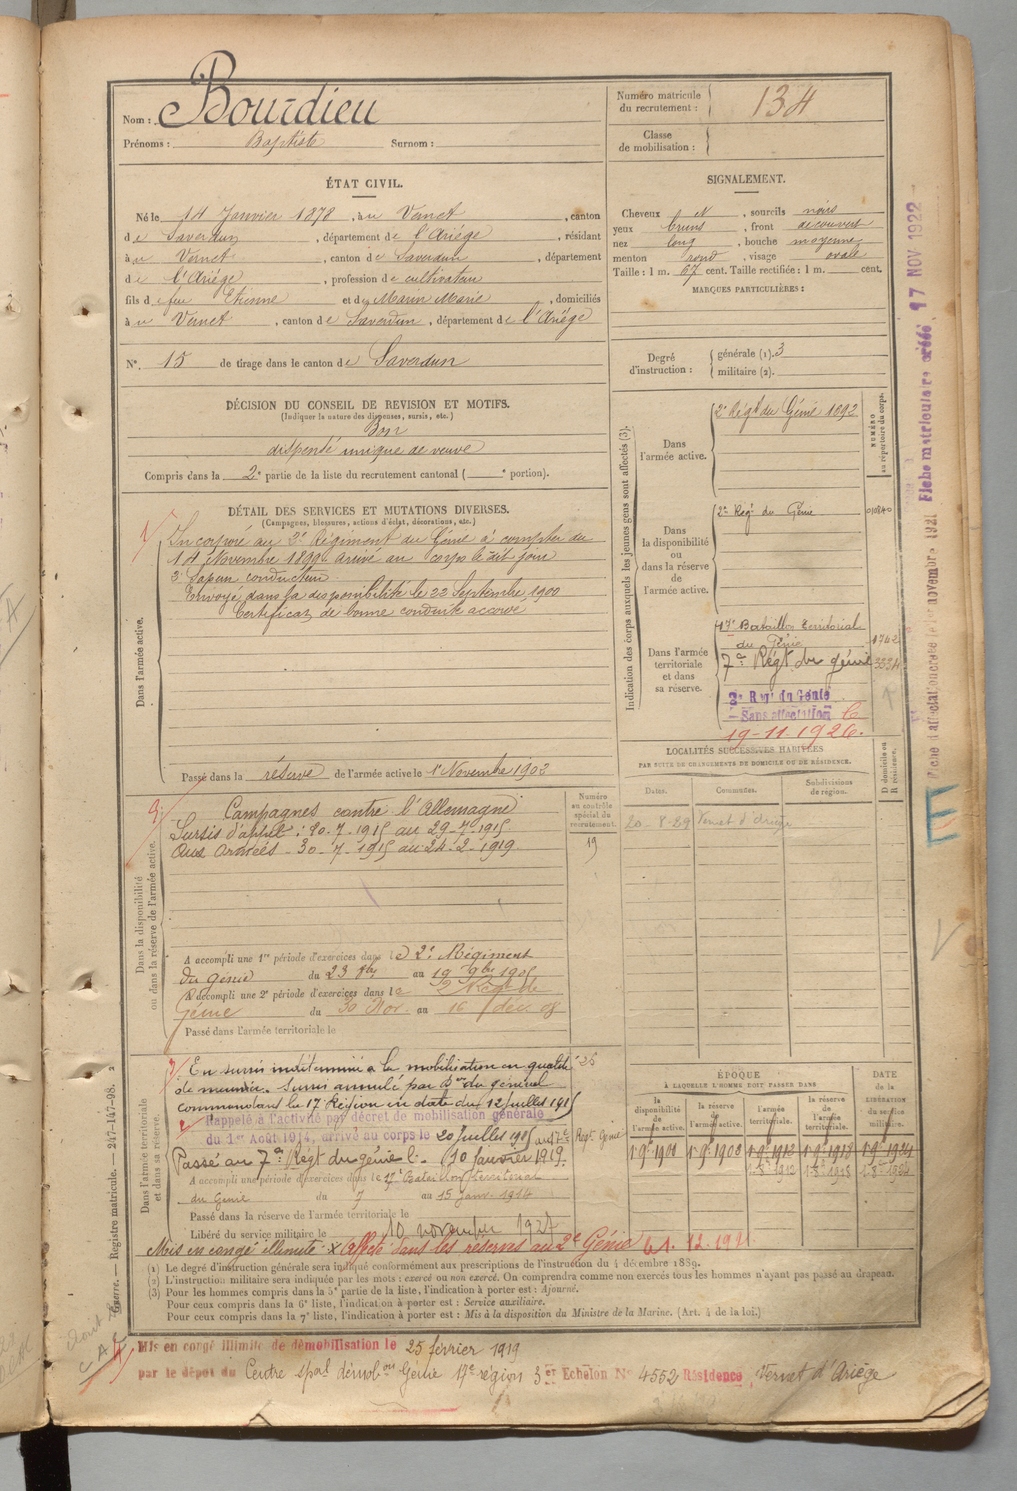 Nom : Bourdieu
Prénoms : Baptiste Surnom :
Numéro matricule du recrutement : 134
Classe de mobilisation :
ÉTAT CIVIL.
Né le 14 Janvier 1878, à u Vernet, canton
d e Saverdun, département d e l'Ariége, résidant
à u Vernet, canton d e Saverdun, département
d e l'Ariége, profession de cultivateur
fils d e feu Etienne et d e Marin Marie, domiciliés
à u Vernet, canton d e Saverdun, département d e l'Ariége
N° 15 de tirage dans le canton d e Saverdun
SIGNALEMENT.
Cheveux N, sourcils noirs
yeux bruns, front découvert
nez long, bouche moyenne
menton rond, visage ovale
Taille : 1 m. 67 cent. Taille rectifiée : 1 m. cent.
MARQUES PARTICULIÈRES :
Degré d'instruction : générale (1). 3
militaire (2).
DÉCISION DU CONSEIL DE REVISION ET MOTIFS.
(Indiquer la nature des dispenses, sursis, etc.)
Bon
dispensé unique de veuve
Compris dans la 2e partie de la liste du recrutement cantonal ( e portion).
DÉTAIL DES SERVICES ET MUTATIONS DIVERSES.
(Campagnes, blessures, actions d'éclat, décorations, etc.)
Dans l'armée active.
Incorporé au 2e Régiment du Génie à compter du
14 Novembre 1899 arrivé au corps le dit jour
2e Sapeur conducteur
Envoyé dans la disponibilité le 22 Septembre 1900
Certificat de bonne conduite accordé
Passé dans la réserve de l'armée active le 1er Novembre 1902
Indication des corps auxquels les jeunes gens sont affectés (3).
NUMÉRO au répertoire du corps.
Dans l'armée active.
2e Régt du Génie 1092
Dans la disponibilité ou dans la réserve de l'armée active.
2e Régt du Génie 010840
Dans l'armée territoriale et dans sa réserve.
17e Bataillon Territorial
du Génie 1742
7e Régt du génie 3334
2e Régt du Génie
Sans affectation
19-11-1926.
LOCALITÉS SUCCESSIVES HABITÉES
PAR SUITE DE CHANGEMENTS DE DOMICILE OU DE RÉSIDENCE.
Dates. Communes. Subdivisions de région. D domicile ou R résidence.
20-8-29 Vernet d'Ariège
Dans la disponibilité ou dans la réserve de l'armée active.
Numéro au contrôle spécial du recrutement.
19
Campagnes contre l'Allemagne
Sursis d'appel : 20-7-1915 au 29-7-1915
Aux Armées - 30-7-1915 au 24-2-1919
A accompli une 1re période d'exercices dans le 2e Régiment
du génie du 23 au 19 9bre 1905
A accompli une 2e période d'exercices dans le 2 Régt de
Génie du 30 Nov. au 16 déc. 08
Passé dans l'armée territoriale le
Dans l'armée territoriale et dans sa réserve.
En sursis indéterminé à la mobilisation en qualité
de meunier. Sursis annulé par Don du général
commandant la 17e Région en date du 12 Juillet 1915
Rappelé à l'activité par décret de mobilisation générale
du 1er Août 1914, arrivé au corps le 20 Juillet 1915 au 17e Régt. Génie
Passé au 7e Régt du génie le 10 Janvier 1919.
A accompli une période d'exercices dans le 17e Bataillon Territorial
du Génie du 7 au 15 Janv. 1914
Passé dans la réserve de l'armée territoriale le
Libéré du service militaire le 10 novembre 1927
Mis en congé illimité x Affecté dans les réserves au 2e Génie
ÉPOQUE
À LAQUELLE L'HOMME DOIT PASSER DANS
la disponibilité de l'armée active. la réserve de l'armée active. l'armée territoriale. la réserve de l'armée territoriale.
DATE de la LIBÉRATION du service militaire.
1-9-1900 1-9-1908 1-9-1912 1-9-1918 1-9-1924
1-8-1912 1-8-1918 1-8-1924
(1) Le degré d'instruction générale sera indiqué conformément aux prescriptions de l'instruction du 4 décembre 1889.
(2) L'instruction militaire sera indiquée par les mots : exercé ou non exercé. On comprendra comme non exercés tous les hommes n'ayant pas passé au drapeau.
(3) Pour les hommes compris dans la 5e partie de la liste, l'indication à porter est : Ajourné.
Pour ceux compris dans la 6e liste, l'indication à porter est : Service auxiliaire.
Pour ceux compris dans la 7e liste, l'indication à porter est : Mis à la disposition du Ministre de la Marine. (Art. 4 de la loi.)
Mis en congé illimité de démobilisation le 25 février 1919
par le dépôt du Centre spal démobon Génie 17e région 3e Echelon No 4552 Résidence, Vernet d'Ariége
Guerre. — Registre matricule. — 247-147-98.
Fiche matriculaire créée 17 NOV 1922
Fiche d'affectation créée le 1er novembre 1921
E